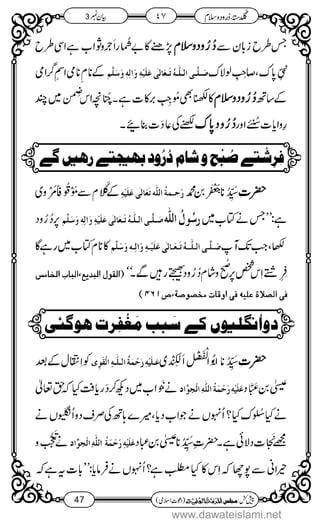 گلدستہ درود و سلام
۴۷
بیان نمبر 3
جس طرح زبان سے دُرُود و سلام پڑھنے کا بے شمار اَجر و ثواب ہے اسی طرح
نبیِّ پاک، صاحبِ لولاک صَلَّی اللہُ تَعَالٰی عَلَیْہِ وَاٰلِہٖ وَسَلَّم کے نامِ نامی اسمِ گرامی
کے ساتھ دُرُود و سلام کا لکھنا بھی مُوجِبِ برکات ہے۔ چنانچہ اس ضمن میں چند
روایات سُنئے اور دُرُودِ پاک لکھنے کی عادت بنائیے۔
فرشتے صُبح و شام دُرُود بھیجتے رھیں گے
حضرتِ سَیِّدُنا جعفر بن محمد رَحْمَۃُ اللہِ تَعَالٰی عَلَیْہِ کے کلام سے موقوفاً مَروی
ہے: ’’جس نے کتاب میں رَسُولُ اللہ صَلَّی اللہُ تَعَالٰی عَلَیْہِ وَاٰلِہٖ وَسَلَّم پر دُرود
لکھا، جب تک آپ صَلَّی اللہُ تَعَالٰی عَلَیْہِ وَاٰلِہٖ وَسَلَّم کا نام کتاب میں رہے گا
فِرِشتے اس شخص پر صُبح و شام دُرُود بھیجتے رہیں گے۔‘‘ (القول البدیع، الباب الخامس
فی الصلاۃ علیہ فی اوقات مخصوصۃ، ص ۴۶۱)
دو اُنگلیوں کے سبب مَغْفِرت ھوگئی
حضرتِ سَیِّدُنا ابُو الْفَضْل الکِنْدِی عَلَیْہِ رَحْمَۃُ اللہِ الْقَوِی کو انتقال کے بعد
عیسیٰ بن عَبَّاد عَلَیْہِ رَحْمَۃُ اللہِ الْجَوَاد نے خواب میں دیکھ کر دریافت کیا کہ حق تعالیٰ
نے کیا سُلُوک کیا؟ اُنہوں نے جواب دیا، میرے ہاتھ کی صرف دو اُنگلیوں نے
مجھے نَجات دِلائی ہے۔ حضرتِ سَیِّدُنا عیسیٰ بن عباد عَلَیْہِ رَحْمَۃُ اللہِ الْجَوَاد نے تَعَجُّب و
حیرانی سے پوچھا کہ اس کا کیا مطلب ہے؟ اُنہوں نے فرمایا: بات یہ ہے کہ
47
پیش کش: مجلس المدینۃ العلمیۃ (دعوتِ اسلامی)
www.dawateislami.net